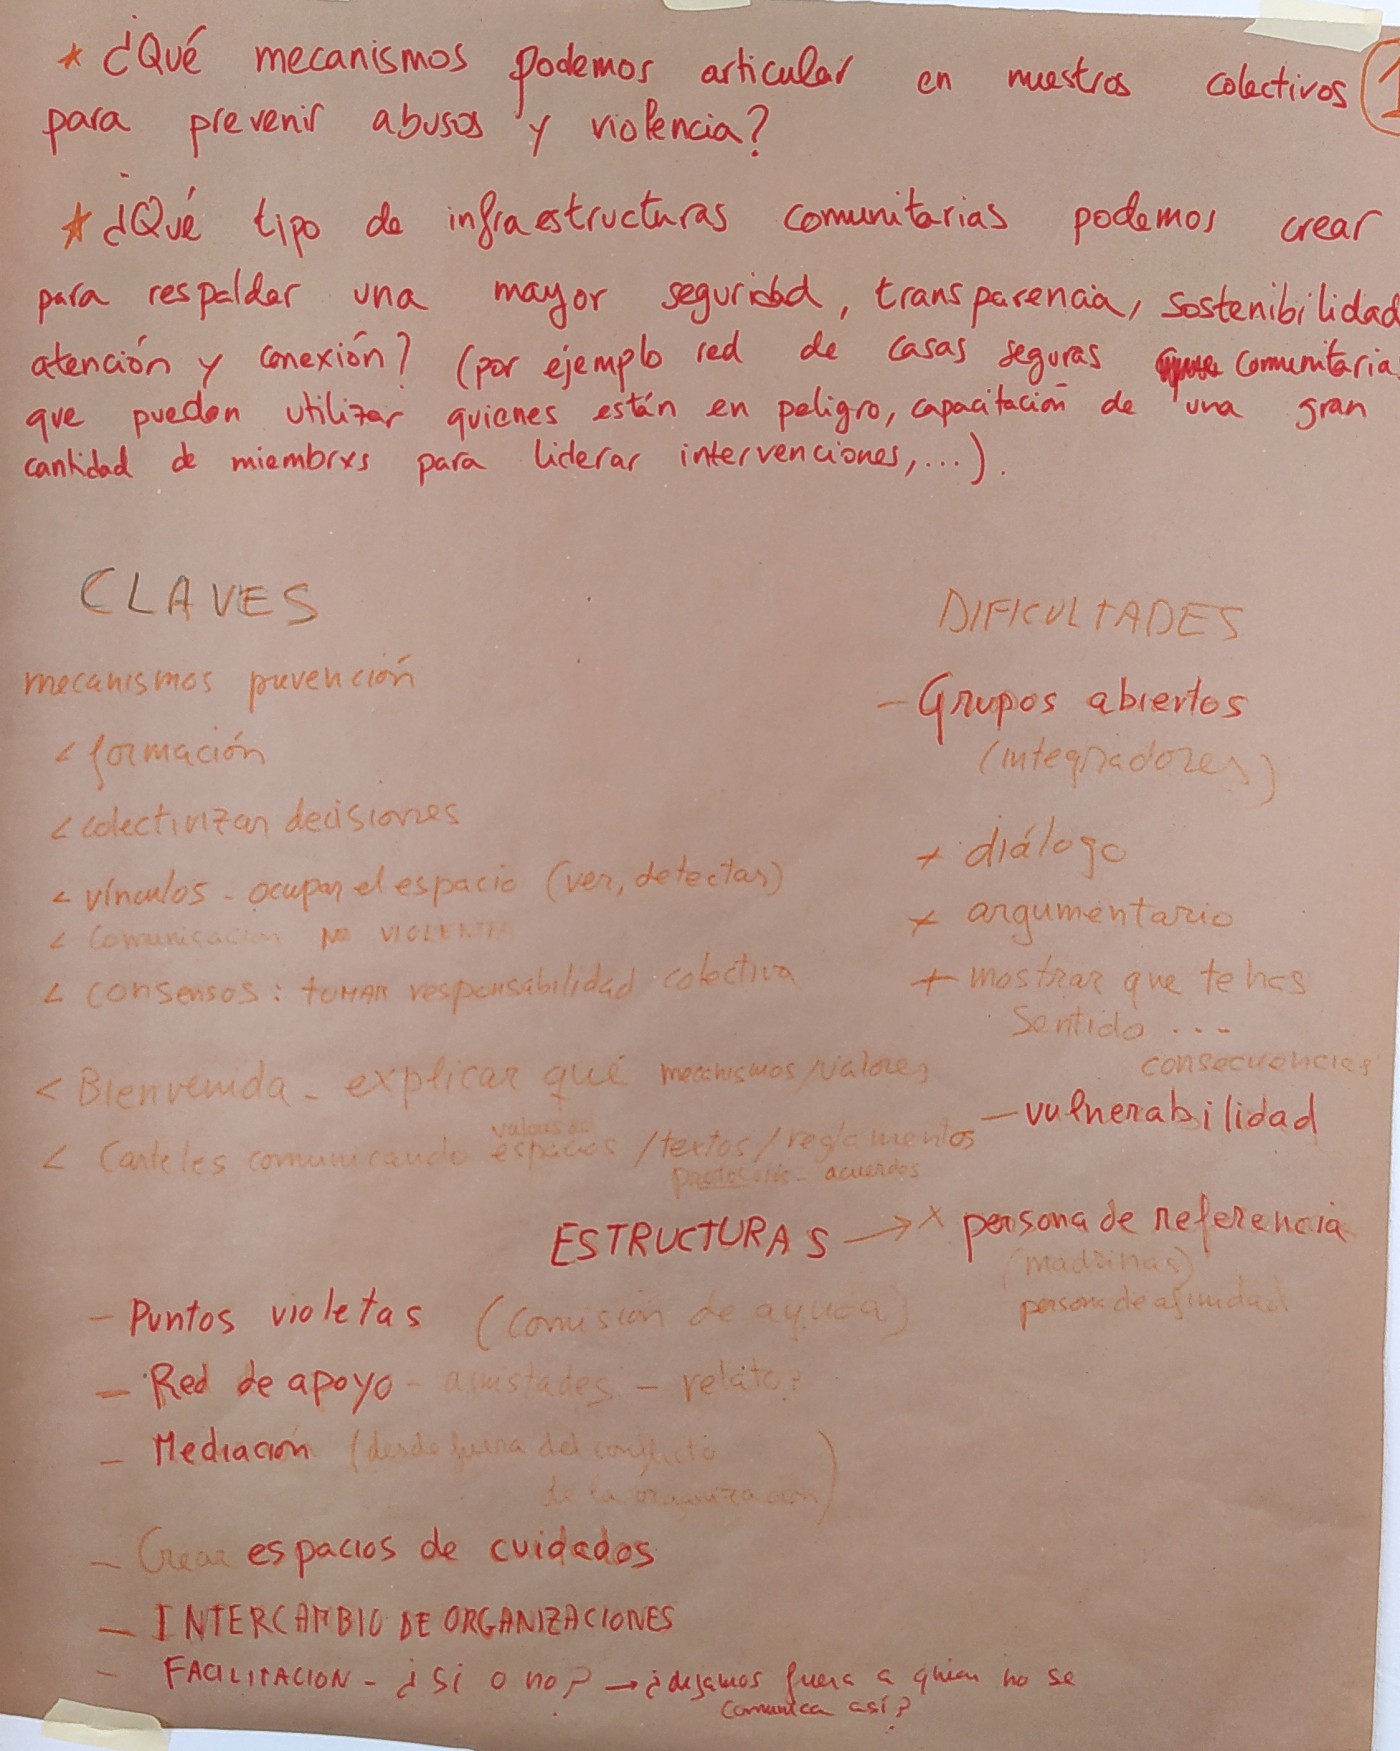 * ¿Qué mecanismos podemos articular en nuestros colectivos 1
para prevenir abusos y violencia?
* ¿Qué tipo de infraestructuras comunitarias podemos crear
para respaldar una mayor seguridad, transparencia, sostenibilidad
atención y conexión? (por ejemplo red de casas seguras comunitaria
que puedan utilizar quienes están en peligro, capacitación de una gran
cantidad de miembrxs para liderar intervenciones,...).
CLAVES
mecanismos prevención
< formación
< colectivizar decisiones
< vínculos - ocupar el espacio (ver, detectar)
< comunicación NO VIOLENTA
< consensos: tomar responsabilidad colectiva
< Bienvenida - explicar qué mecanismos/valores
< Carteles comunicando espacios /textos/reglamentos
protocolos - acuerdos
DIFICULTADES
- Grupos abiertos
(integradores)
+ diálogo
+ argumentario
+ mostrar que te has
sentido ...
consecuencias
- vulnerabilidad
ESTRUCTURAS → x persona de referencia
(madrinas)
persona de afinidad
- Puntos violetas (comisión de ayuda)
- Red de apoyo - amistades - relato?
- Mediación (desde fuera del conflicto
de la organización)
- Crear espacios de cuidados
- INTERCAMBIO DE ORGANIZACIONES
- FACILITACION - ¿Sí o no? → ¿dejamos fuera a quien no se
comunica así?